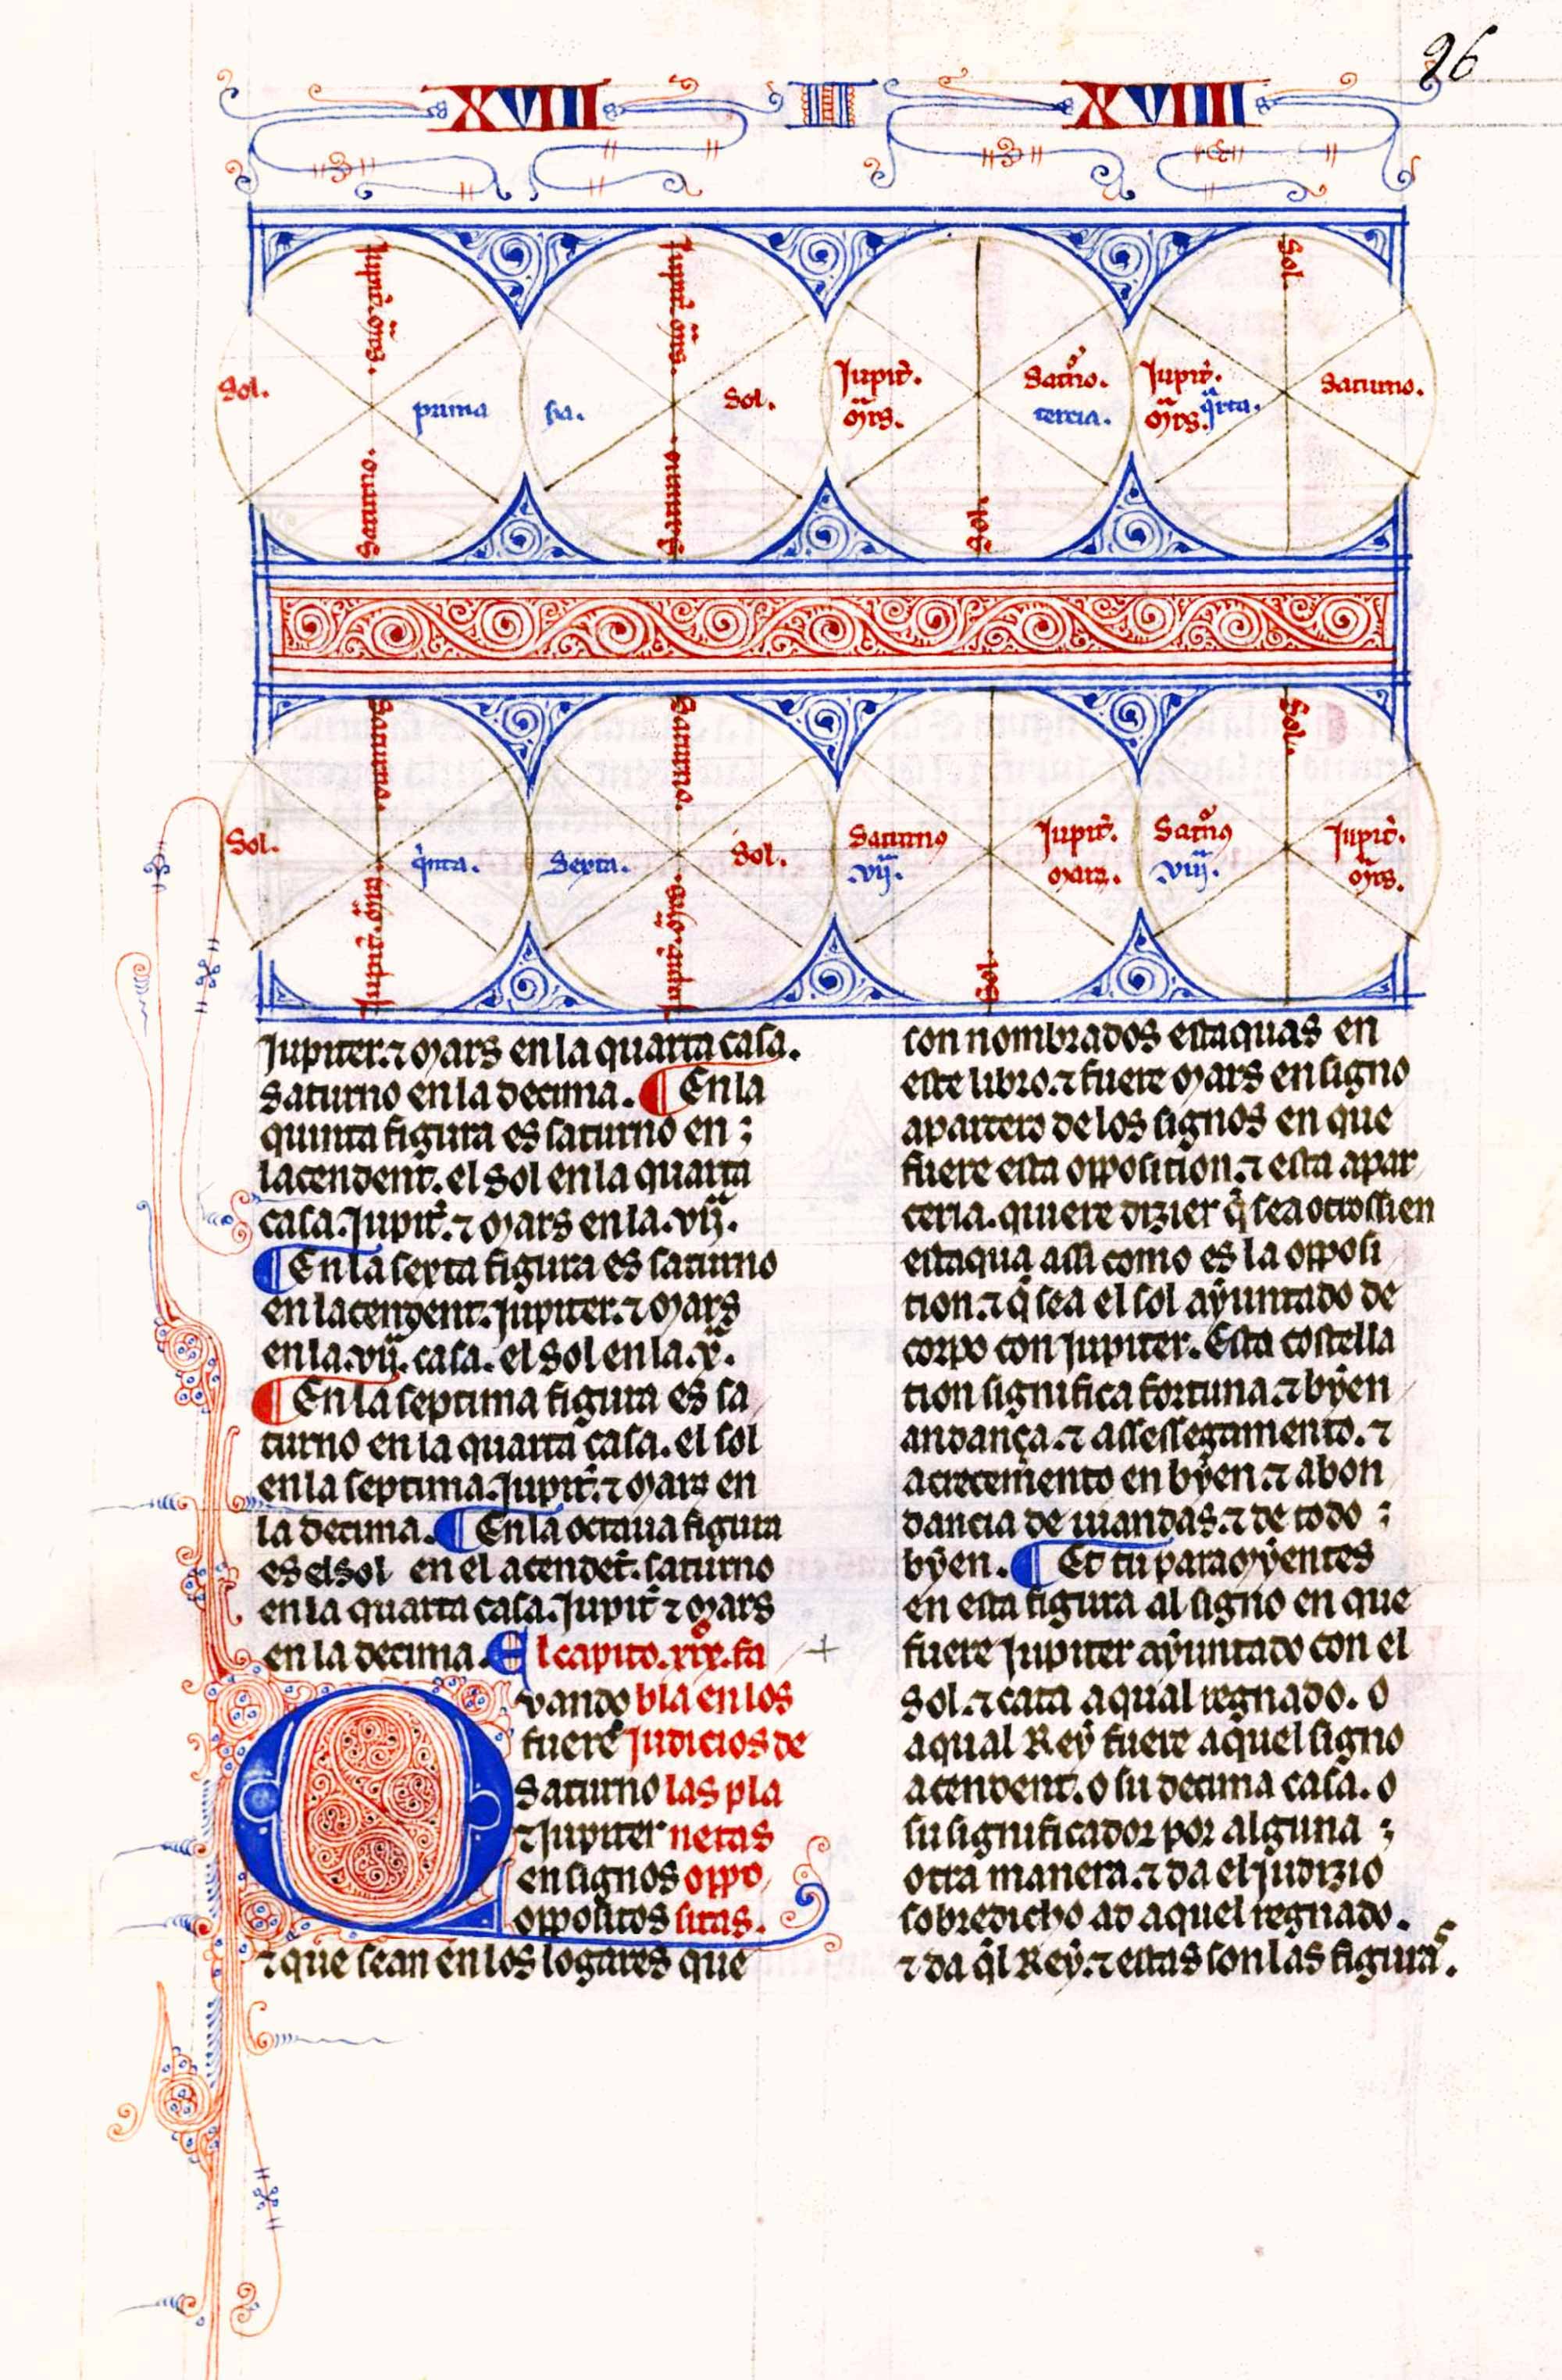 96
XVIII II XVIIII
Jupit̃. m̃rs.
Saturno.
Sol.
prima
Jupit̃. m̃rs.
Saturno.
sa.
Sol.
Jupit̃.
m̃rs.
Satn̊o.
tercia.
Sol.
Sol.
Jupit̃.
m̃rs. q̃rta.
Saturno.
Saturno.
Jupit̃. m̃rs.
Sol.
q̇nta.
Saturno.
Jupit̃. m̃rs.
Sexta.
Sol.
Saturnꝯ
.vij̃.
Jupit̃.
mars.
Sol.
Sol.
Satn̊ꝯ
.viij̃.
Jupit̃.
m̃rs.
Jupiter. ⁊ mars en la quarta casa.
saturno en la decima. ¶ En la
quinta figura es saturno en ;
lacendent. el Sol en la quarta
casa. Jupit̃. ⁊ mars en la .vij̃.
¶ En la sexta figura es saturno
en lacendent. Jupiter. ⁊ mars
en la .vij̃. casa. el Sol en la .x̃.
¶ En la septima figura es sa
turno en la quarta casa. el sol
en la septima. Jupit̃. ⁊ mars en
la decima. ¶ En la octaua figura
es el Sol en el acendẽt. saturno
en la quarta casa. Jupit̃ ⁊ mars
en la decima. El capito. xix̊. fa
Quando bla en los
fuerẽ Judicios de
Saturno las pla
⁊ Jupiter netas
en signos oppo
oppositos sitas.
⁊ que sean en los logares que
son nombrados estaquas en
este libro. ⁊ fuere mars en signo
apartero de los signos en que
fuere esta opposition. ⁊ esta apar
ceria. quiere dizier q̃ sea otrossi en
estaqua assi como es la opposi
tion. ⁊ q̃ sea el sol aẏuntado de
corpo con Jupiter. Esta costella
tion significa fortuna. ⁊ bẏen
andança. ⁊ assessegamiento. ⁊
acrecemiento en bẏen. ⁊ abon
dancia de uiandas. ⁊ de todo ;
bẏen. ¶ Et tu para mẏentes
en esta figura al signo en que
fuere Jupiter aẏuntado con el
Sol. ⁊ cata a qual regnado. o
a qual Reẏ fuere aquel signo
acendent. o su decima casa. o
su significador por alguna ;
otra manera. ⁊ da el judizio
sobredicho ad aquel regnado.
⁊ da q̃l Reẏ. ⁊ estas son las figuraˢ.